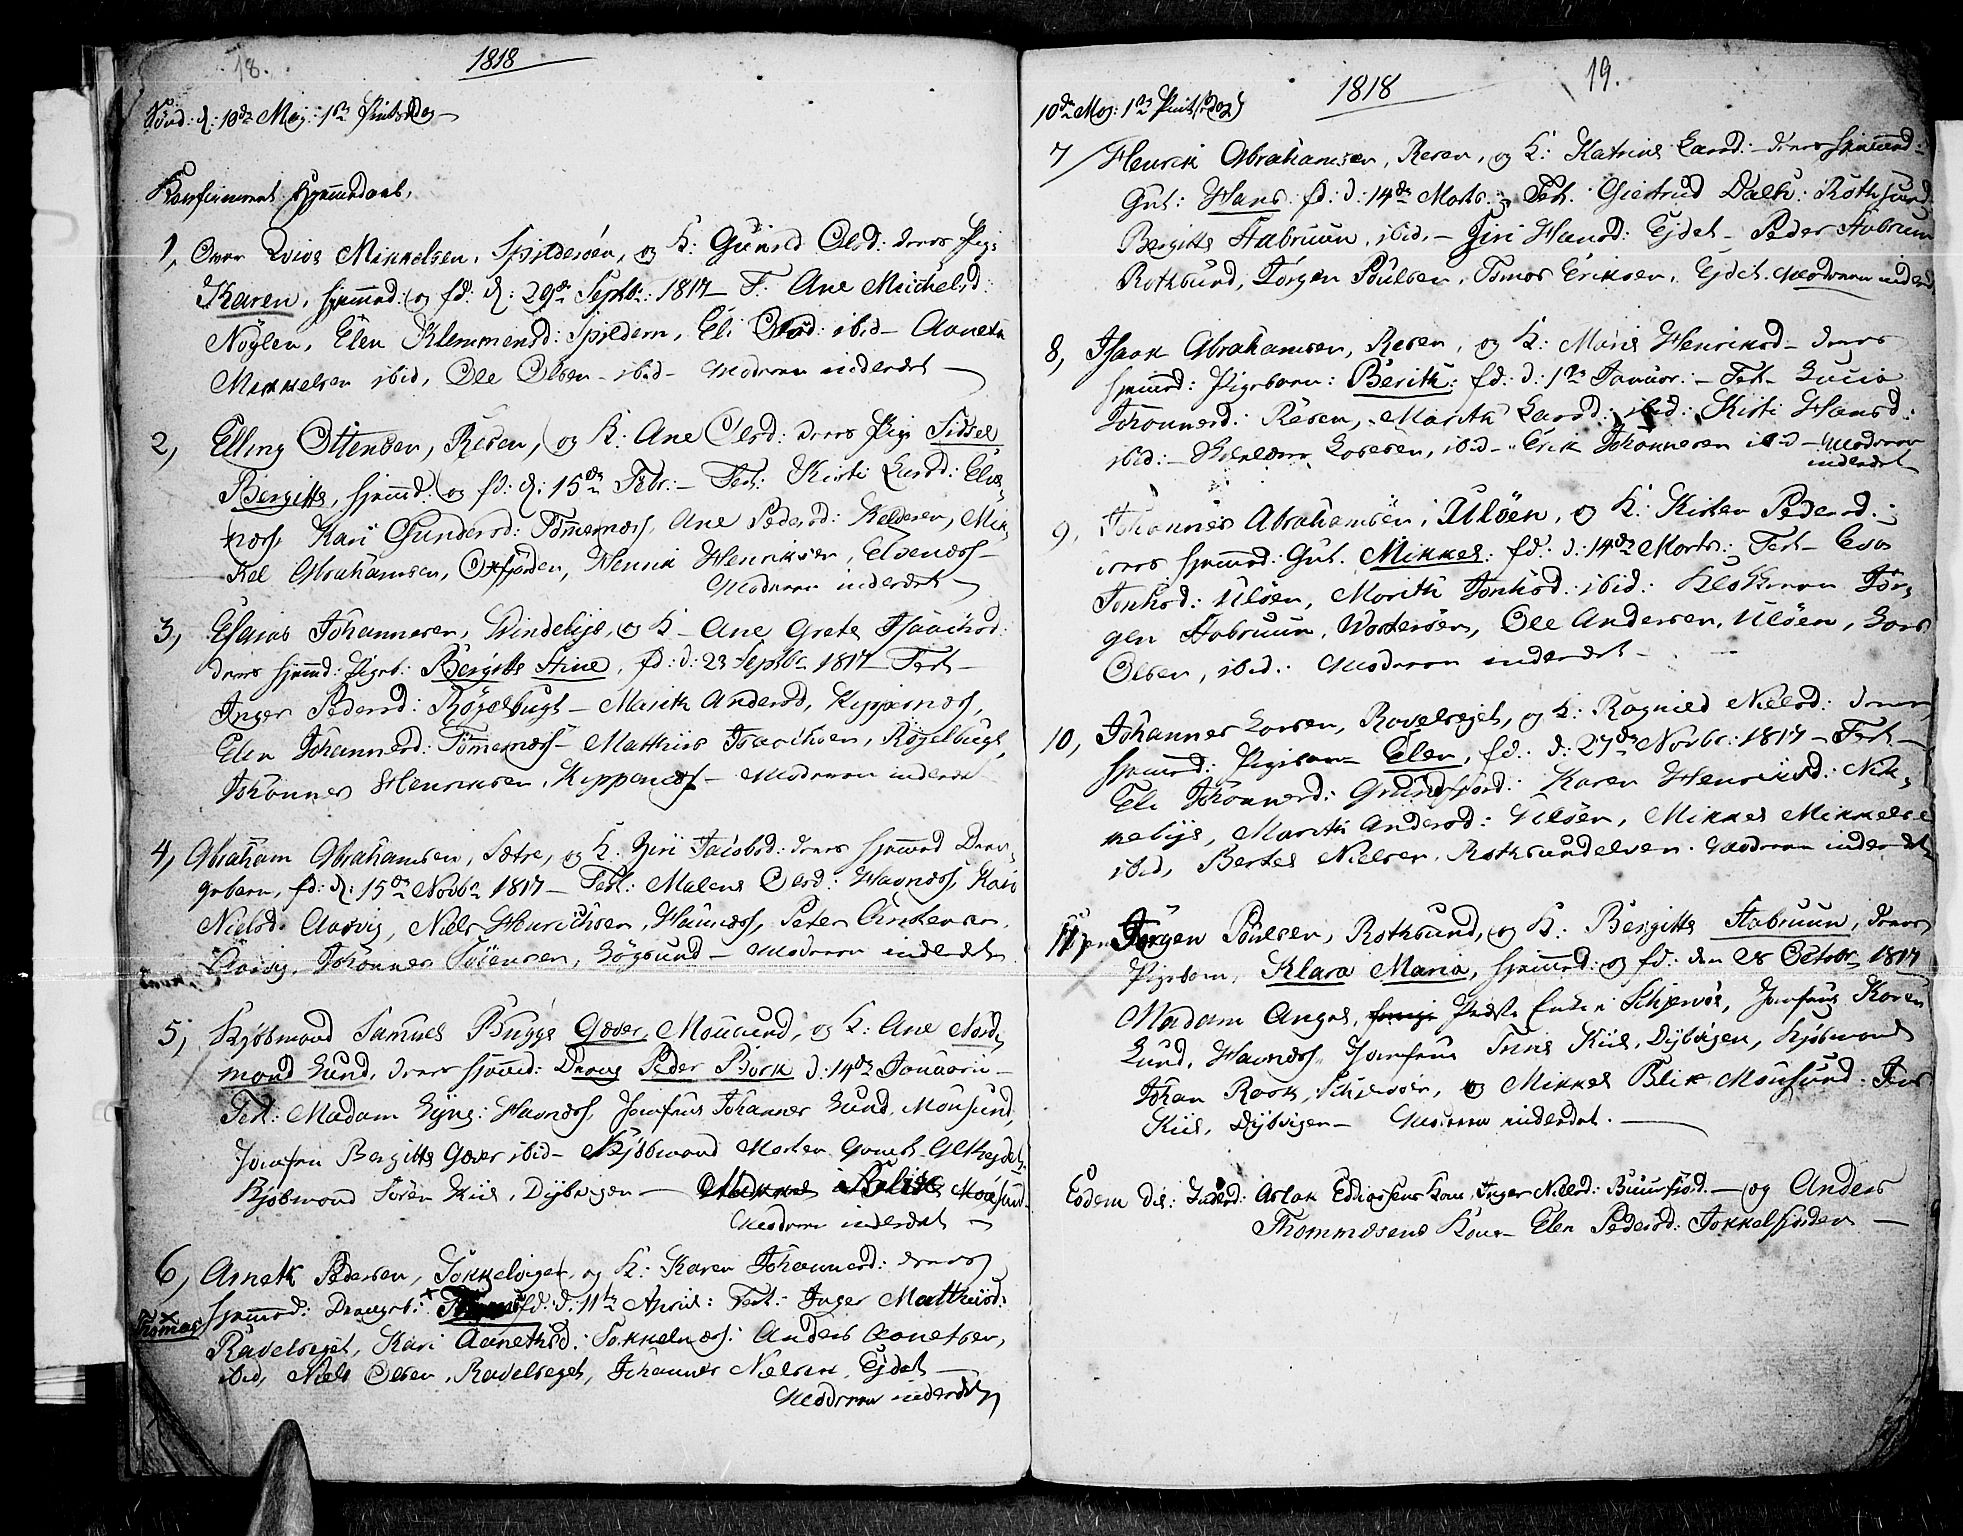 18.
1818
d: 10de May: 1ste Pintsedag
Konfirmert Hjemmedaab.
1, Aron Qvive Mikkelsen, Spilderöen, og K: Gunild Olsd: deres Pige
Karen, hjemmd: og fd: d: 29de Septbr: 1817 – T: Ane Michelsd:
Nöylen, Elen Klemmensd: Spildern, Eli Olsd: ibid – Aaneth
Mikkelsen ibid, Ole Olsen – ibid – Modren inderdet
2, Elling Ottensen, Reisen, og K: Ane Olsd: deres Pige Sidsel
Bergitte, hjemmd: og fd: d: 15de Febr: – Test: Kirsti Larsd: Elve-
næss, Kari Gundersd: Tömernæss, Ane Pedersd: Kelderen, Mik-
kel Abrahamsen, Oxfjorden, Henrik Henriksen, Elvenæss –
Modren inderdet
3, Esaias Johannesen, Spindelije, og K – Ane Grete Isaachsd:
deres hjemmd: Pigeb: Bergitte Stine, fd: d: 23 Septbr 1817 – Test –
Inger Pedersd: Röyelbugt – Marith Andersd, Kippernæss,
Elen Johannesd: Tömernæss – Matthias Isachsen, Röyelbugt,
Johannes Henriksen, Kippernæss – Modren inderdet
4, Abraham Abrahamsen, Sætre, og K: Giri Jacobsd: deres hjemmd Dren-
gebarn, fd: d: 15de Novbr 1817 – Test: Malene Olsd: Havnæss, Kari
Nielsd. Aarvig, Niels Henrichsen, Havnæss, Peter Andersen
Aarvig, Johannes Sörensen, Lögsund – Modren inderdet
5, Kjöbmand Samuel Bugge Gæver, Mousund, og K: Ane Nord-
mand Lund, deres hjemmd: Dreng Peder Bork d: 14de Januarii –
Test: Madam Lyng: Havnæss, Jomfrue Johanne Lund, Mousund,
Jomfru Bergitte Gæver ibid – Kjöbmand Morten Qvamt. Altejdet,
Kjöbmand Sören Kiil, Dybvigen – Mikkel Blix Mousund.
Modren inderdet –
6, Arneth Pedersen, Sokkelvigen, og K: Karen Johannesd: deres
hjemmd: Drengeb: fd: d: 11te April: Test: Inger Matthisd:
Thomas
Ravelseyet, Kari Aanethsd: Sokkelnæss: Anders Aanetsen,
ibid, Niels Olsen, Ravelseyet, Johannes Nielsen, Ejdet –
Modren inderdet
19.
1818
10de May: 1ste Pintsedag
7, Henrik Abrahamsen, Reisen, og K: Katrine Larsd: – deres hjemmd:
Gut: Hans fd: d: 14de Marts: Test. Giertrud Dalk: Rotsund
Bergitte Aabruun, ibid, – Giri Hansd: Ejdet – Peder Aabruun
Rotsund, Jörgen Poulsen, Tomas Eriksen, Ejdet. Modren inderdet
8, Isaak Abrahamsen, Reisen, og K: Marie Henriksd – deres
hjemmd: Pigebarn: Berith: fd: d: 1ste Januar: – Test – Lucie
Johannesd: Reisen, Marith Larsd: ibid: Kirsti Hansd:
ibid: – Larsen, ibid – Erik Johannesen ibid – Modren
inderdet
9, Johannes Abrahamsen, Ulöen, og K: Kirsten Pedersd:
deres hjemmd: Gut. Mikkel: fd: d: 14de Marts: Test – Eva
Jonhsd: Ulöen, Marith Jonhsd: ibid: Klokkeren Jör-
gen Aabruun, Worteröen, Ole Andersen, Ulöen, Lars
Olsen, ibid: Modren inderdet –
10, Johannes Larsen, Ravelseyet, og K: Ragnild Nielsd: deres
hjemmd: Pigebarn Elen, fd: d: 27de Novbr: 1817 – Test –
Eli Johannesd: Grundfjord: Karen Henriksd: Nik-
kebye, Marith Andersd: Ulöen, Mikkel Mikkelsen
ibid, Bertel Nielsen, Rotsundelven. Modren inderdet
11, Jörgen Poulsen, Rotsund, og K: Bergitte Aabruun, deres
Pigebarn, Klara Maria, hjemmd: og fd: den 28 Octobr 1817
Madam Angel, Præste Enke i Schjervöe, Jomfrue Karen
Lund, Havnæss, Jomfrue Trine Kiil, Dybvigen, Kjöbmand
Johan Rook, Schjervöe, og Mikkel Blix Mousund: Jens
Kiil, Dybvigen – Modren inderdet. –
Eodem die: Inderd: Aslak Eddiassens Kone, Inger Nielsd: Buurfiord. – og Anders
Thommæsens Kone – Elen Pedersd: Jokkelfjorden –